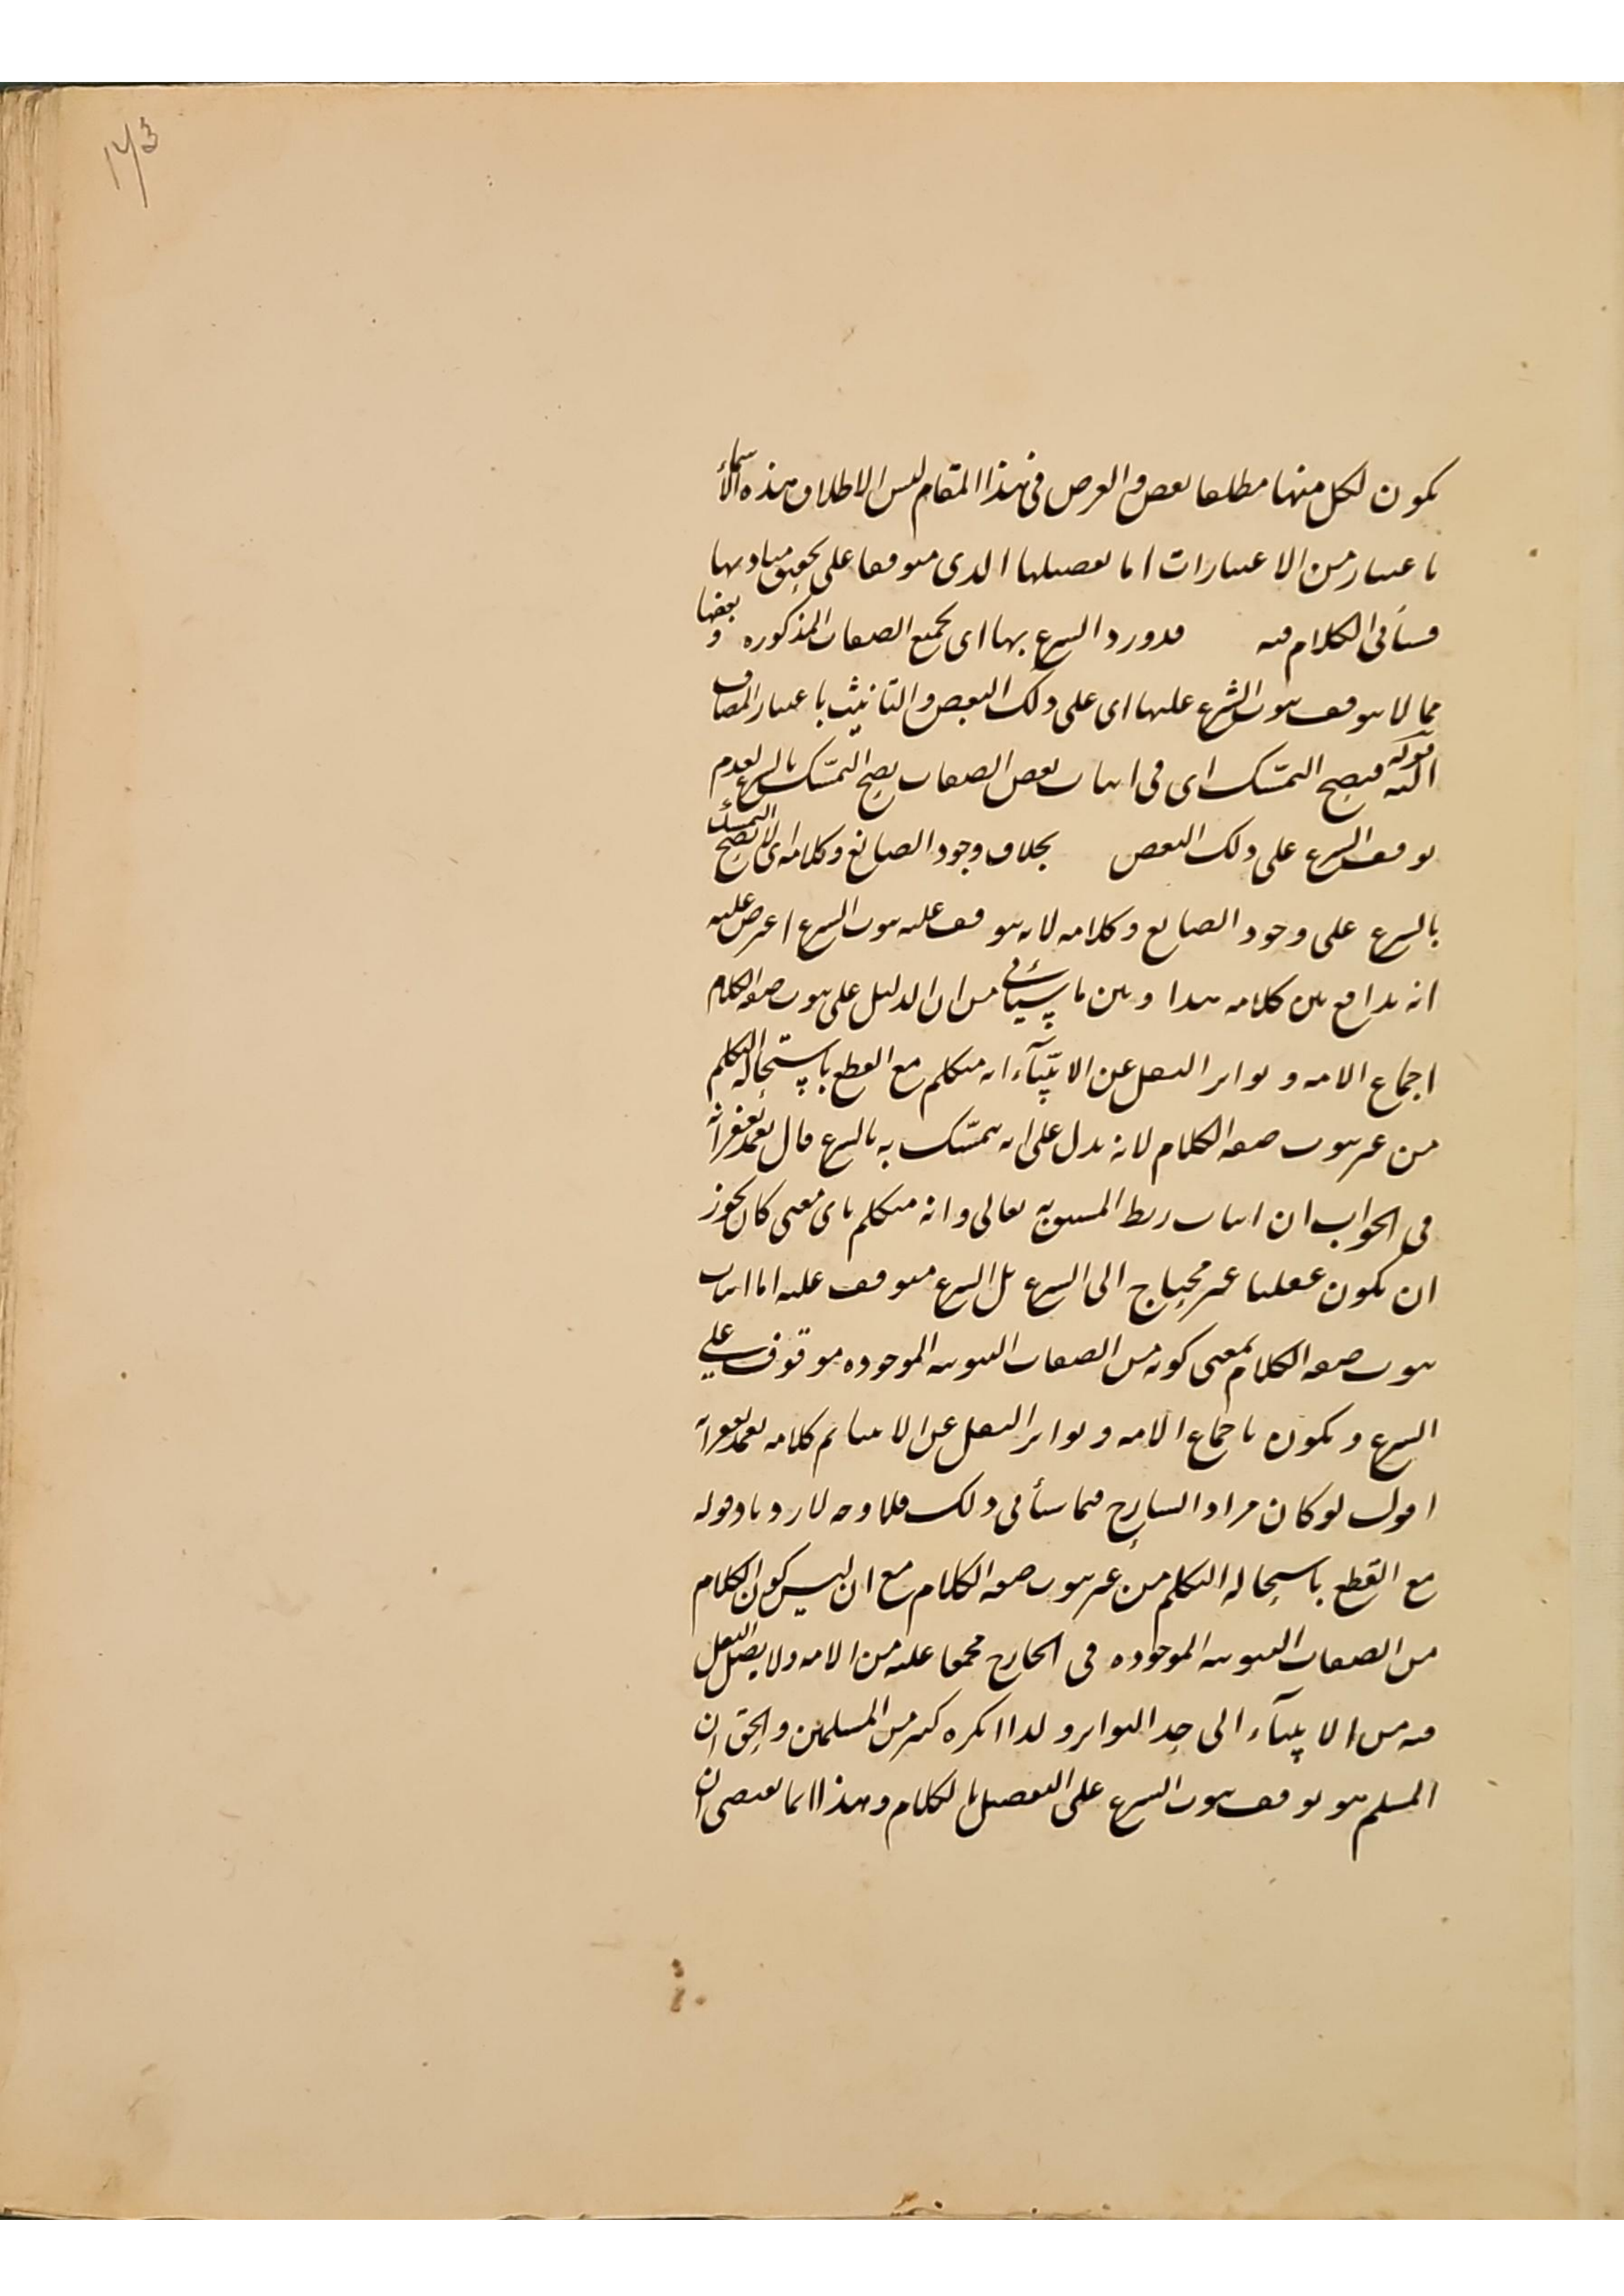 143
يكون لكل منها مطلعا بعض و الغرض فى هذا المقام ليس الا اطلاق هذه الأسماء
باعتبار من الاعتبارات اما تفصيلها الذى متوقفا على تحقق مباديها
فسيأتى الكلام فيه قد ورد الشرع بها اى بجميع الصفات المذكوره و بعضها
مما لا يتوقف ثبوت الشرع عليها اى على ذلك البعض و التانيث باعتبار المضاف
اليه قوله فيصح التمسّك اى فى اثبات بعض الصفات يصح التمسّك بالشرع لعدم
توقف الشرع على ذلك البعض بخلاف وجود الصانع و كلامه اى لا يصح التمسك
بالشرع على وجود الصانع و كلامه لانه يتوقف عليه ثبوت الشرع اعترض عليه
انه تدافع بين كلامه هذا و بين ما سيأتى من ان الدليل على ثبوت صفه الكلام
اجماع الامه و تواتر النقل عن الانبيآء انه متكلم مع القطع باستحاله التكلم
من غير ثبوت صفه الكلام لانه يدل على انه يتمسّك به بالشرع قال تغمد بغفرانه
فى الجواب ان اثبات ربط المنسوب به تعالى و انه متكلم باى معنى كان يجوز
ان يكون عقليا غير محتاج الى الشرع بل الشرع متوقف عليه اما اثبات
ثبوت صفه الكلام بمعنى كونه من الصفات الثبوتيه الموجوده موقوف على
الشرع و يكون باجماع الامه و تواتر النقل عن الانبيا تم كلامه تغمد بغفرانه
اقول لو كان مراد الشارح فيما سيأتى ذلك فلا وجه لازدياد قوله
مع القطع باستحاله التكلم من غير ثبوت صفه الكلام مع ان ليس كون الكلام
من الصفات الثبوتيه الموجوده فى الخارج مجمعا عليه من الامه و لا يصل النقل
فيه من الانبيآء الى حد التواتر و لذا انكره كثير من المسلمين و الحق ان
المسلم هو توقف ثبوت الشرع على التفصيل بالكلام و هذا انما يقتضى ان